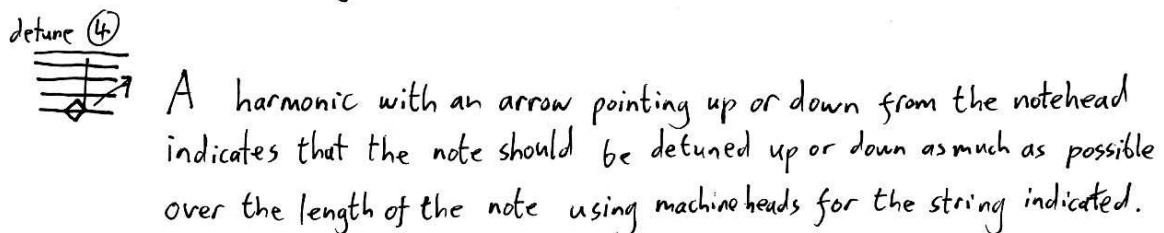 detune ④
A harmonic with an arrow pointing up or down from the notehead
indicates that the note should be detuned up or down as much as possible
over the length of the note using machine heads for the string indicated.